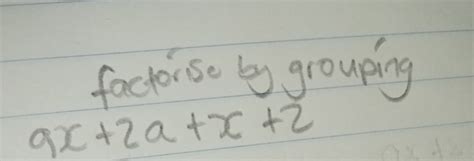 factorise by grouping
ax+2a+x+2